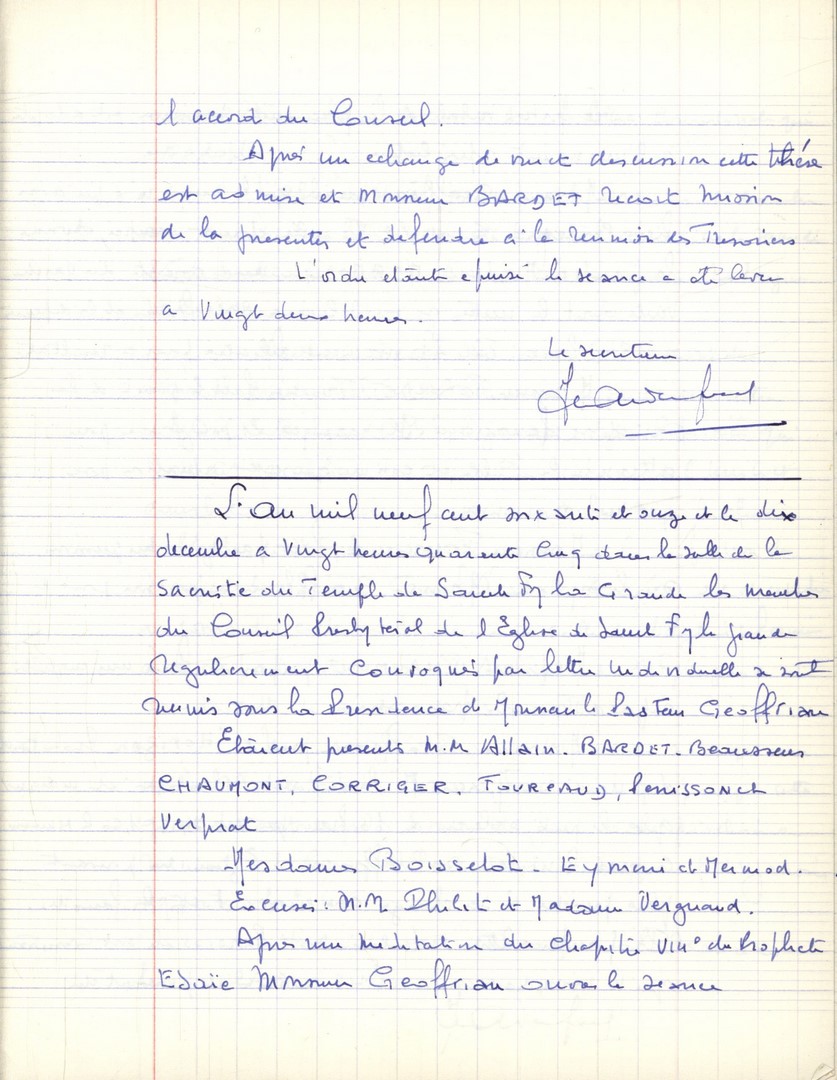 l accord du Conseil.
Après un echange de vue et discussion cette thèse
est admise et Monsieur BARDET recoit mission
de la presenter et defendre à la reunion des Tresoriers
L'ordre étant epuisé la seance a été levee
a Vingt deux heures.
Le secretaire
L'an mil neuf cent soixante et onze et le dix
decembre a Vingt heures quarante Cinq dans la salle de la
Sacristie du Temple de Sainte Foy la Grande les membres
du Conseil Presbyteral de l Eglise de Sainte Foy la grande
regulierement Convoqués par lettre individuelle se sont
reunis sous la Presidence de Monsieur le Pasteur Geoffriau
Etaient presents M.M Allain. BARDET. Beausseus
CHAUMONT, CORRIGER, TOURPAUD, Penissonet
Verprat
Mesdames Boisselot. Eymeri et Mermod.
Excusés: M.M et Madame Vergnaud.
Apres une meditation du Chapitre VIII° du Prophete
Esaïe Monsieur Geoffriau ouvre la seance